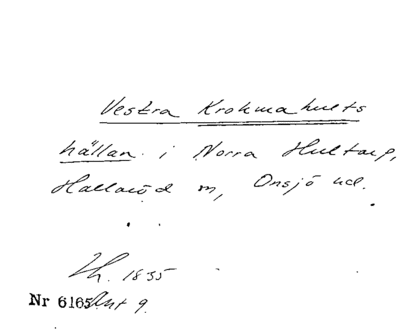 Vestra Krokmahults
hällan i Norra Hultarp,
Hallaröd m, Onsjö hd.
Th. 1835
Nr 6165 Ant 9.